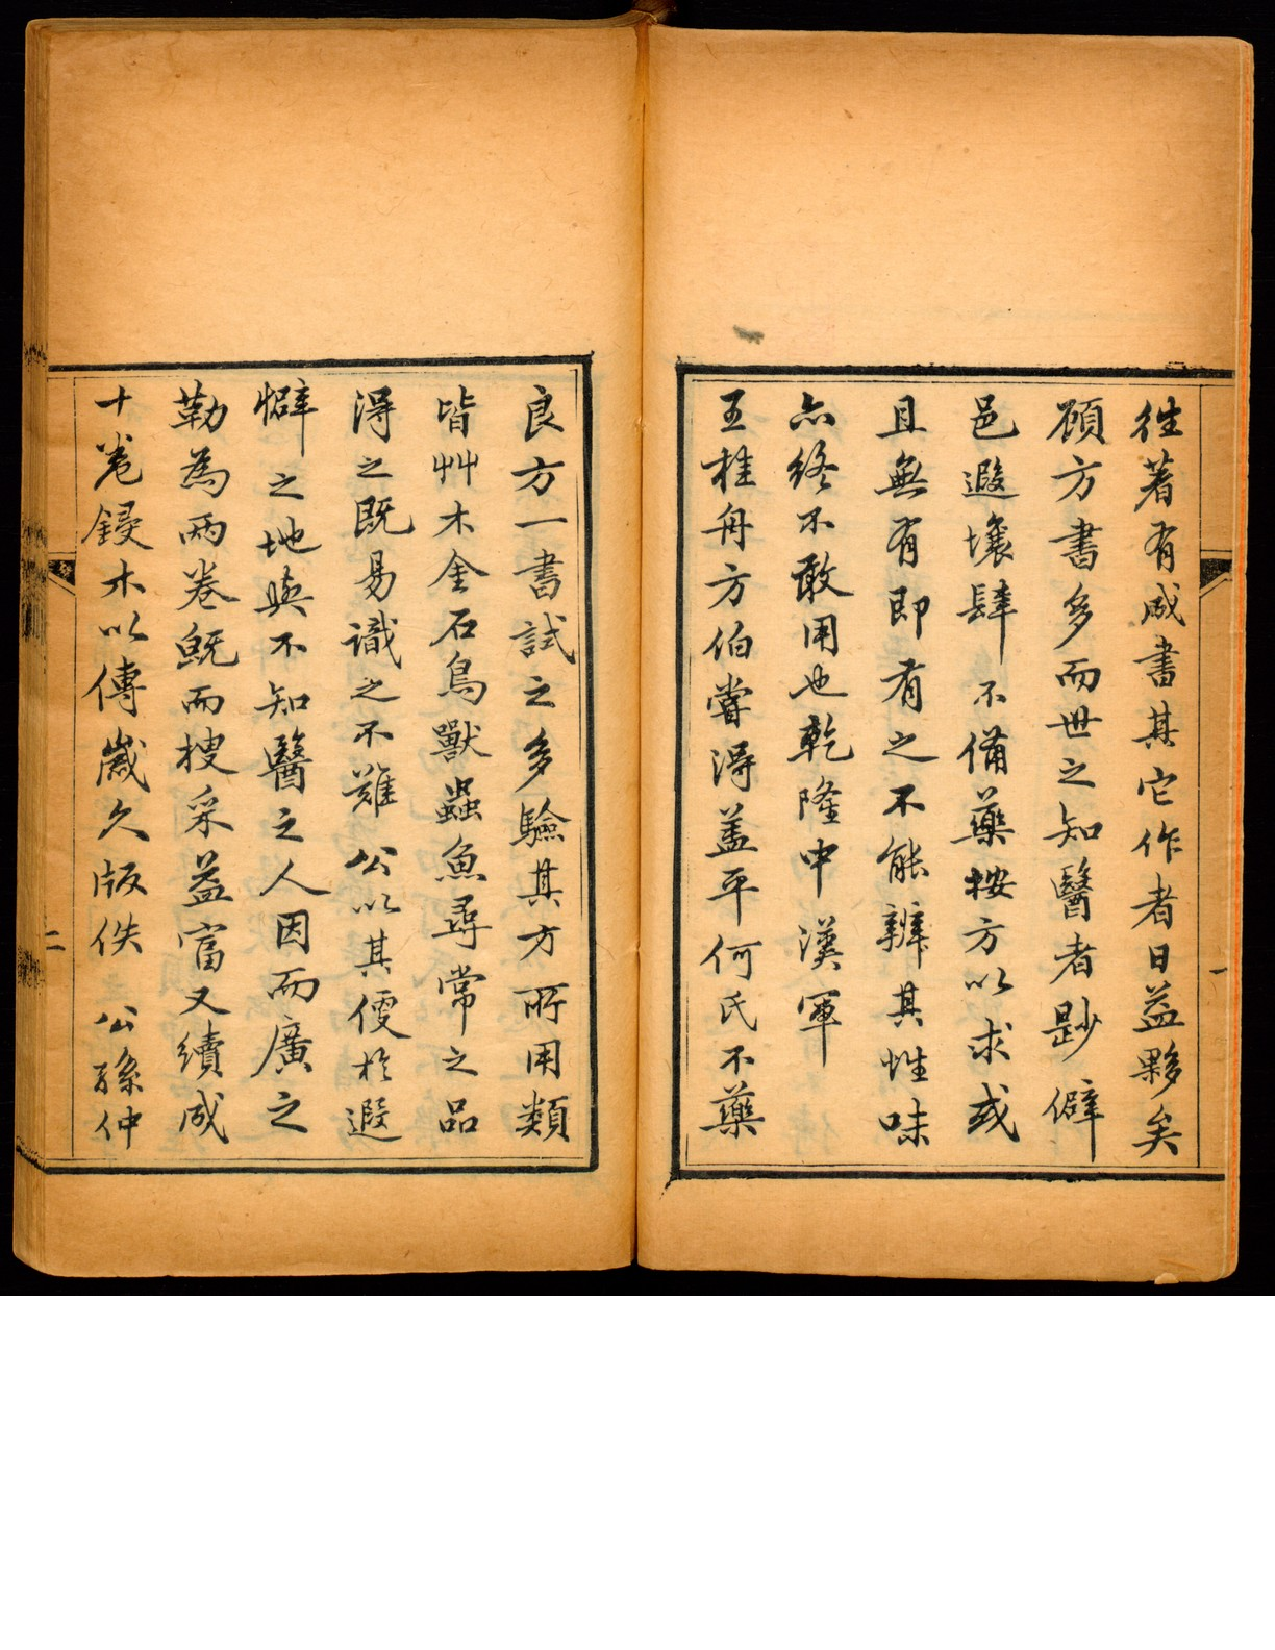 往著有成書其它作者日益夥矣
顧方書多而世之知醫者尟僻
邑遐壤肆不備藥按方以求或
且無有即有之不能辨其性味
亦終不敢用也乾隆中漢軍
王桂舟方伯嘗淂葢平何氏不藥
良方一書試之多驗其方所用類
皆艸木金石鳥獸蟲魚尋常之品
淂之既易識之不難公以其便於遐
僻之地與不知醫之人因而廣之
勒為兩卷既而搜采益富又續成
十卷鋟木以傳歲久版佚公孫仲
一
二